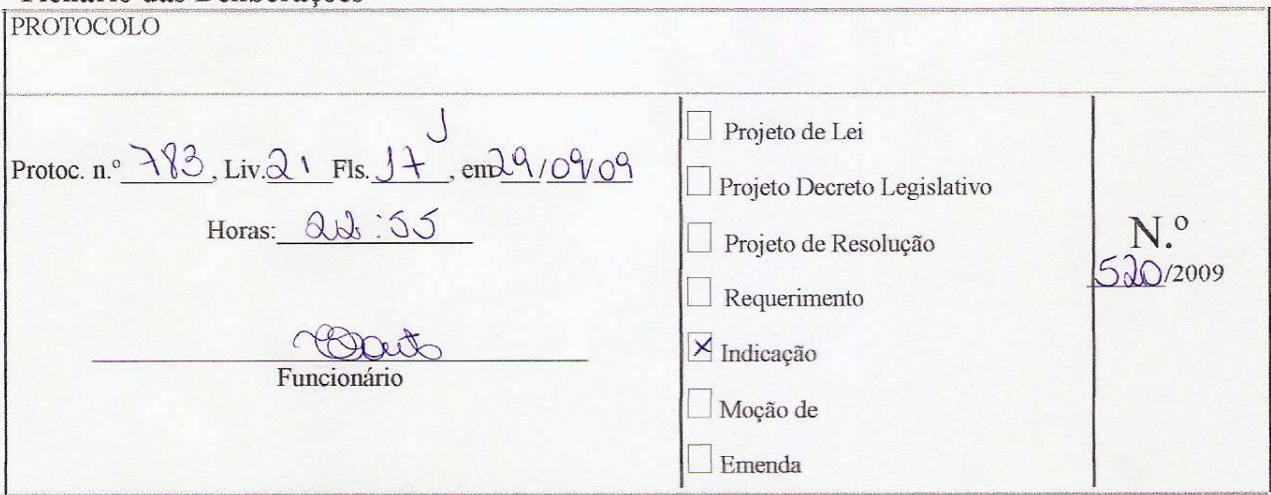 PROTOCOLO
Protoc. n.º 783, Liv. 21 Fls. 17, em 29/09/09
Horas: 22:55
Funcionário
Projeto de Lei
Projeto Decreto Legislativo
Projeto de Resolução
Requerimento
X Indicação
Moção de
Emenda
N.º
520/2009